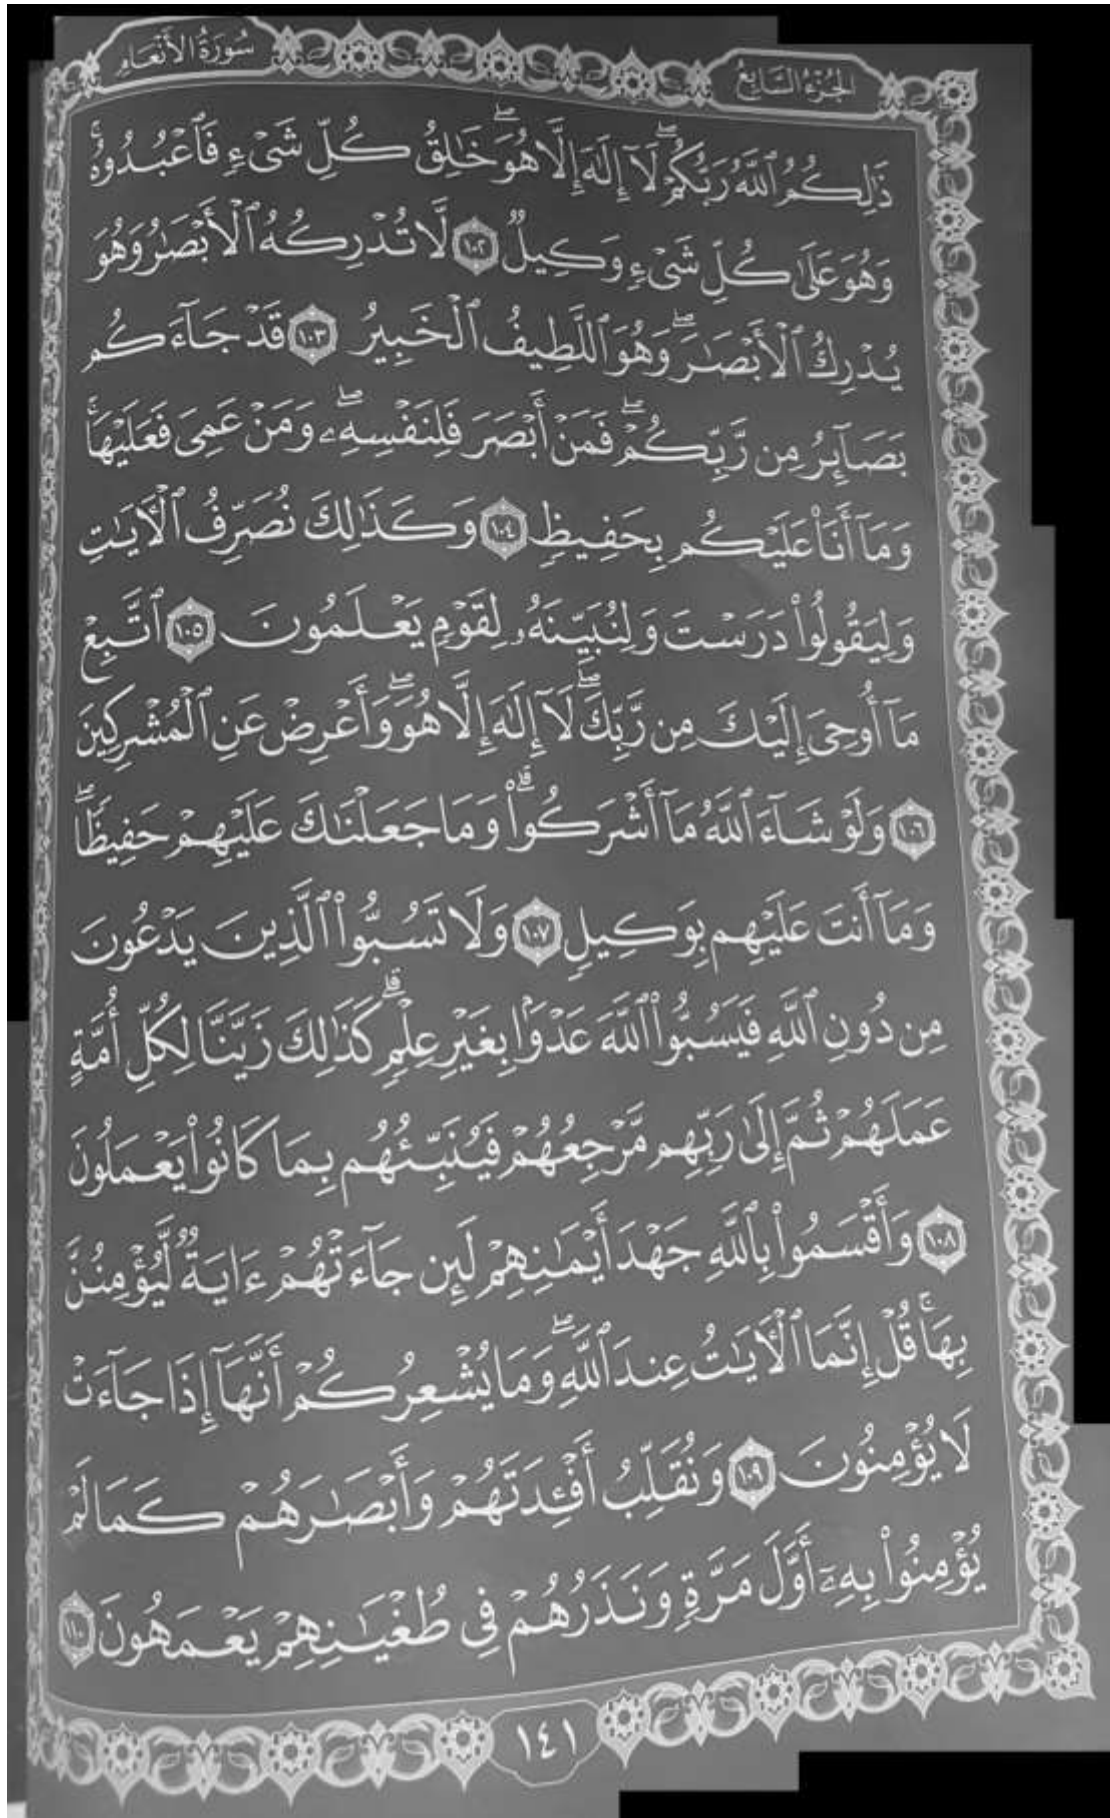 الجزء السابع
سورة الأنعام
ذَٰلِكُمُ ٱللَّهُ رَبُّكُمْۖ لَآ إِلَٰهَ إِلَّا هُوَۖ خَٰلِقُ كُلِّ شَىْءٍ فَٱعْبُدُوهُۚ
وَهُوَ عَلَىٰ كُلِّ شَىْءٍ وَكِيلٌ ١٠٢ لَّا تُدْرِكُهُ ٱلْأَبْصَٰرُ وَهُوَ
يُدْرِكُ ٱلْأَبْصَٰرَۖ وَهُوَ ٱللَّطِيفُ ٱلْخَبِيرُ ١٠٣ قَدْ جَآءَكُم
بَصَآئِرُ مِن رَّبِّكُمْۖ فَمَنْ أَبْصَرَ فَلِنَفْسِهِۦۖ وَمَنْ عَمِىَ فَعَلَيْهَاۚ
وَمَآ أَنَا۠ عَلَيْكُم بِحَفِيظٍ ١٠٤ وَكَذَٰلِكَ نُصَرِّفُ ٱلْأَيَٰتِ
وَلِيَقُولُوا۟ دَرَسْتَ وَلِنُبَيِّنَهُۥ لِقَوْمٍ يَعْلَمُونَ ١٠٥ ٱتَّبِعْ
مَآ أُوحِىَ إِلَيْكَ مِن رَّبِّكَۖ لَآ إِلَٰهَ إِلَّا هُوَۖ وَأَعْرِضْ عَنِ ٱلْمُشْرِكِينَ
١٠٦ وَلَوْ شَآءَ ٱللَّهُ مَآ أَشْرَكُوا۟ۗ وَمَا جَعَلْنَٰكَ عَلَيْهِمْ حَفِيظًاۖ
وَمَآ أَنتَ عَلَيْهِم بِوَكِيلٍ ١٠٧ وَلَا تَسُبُّوا۟ ٱلَّذِينَ يَدْعُونَ
مِن دُونِ ٱللَّهِ فَيَسُبُّوا۟ ٱللَّهَ عَدْوًۢا بِغَيْرِ عِلْمٍۗ كَذَٰلِكَ زَيَّنَّا لِكُلِّ أُمَّةٍ
عَمَلَهُمْ ثُمَّ إِلَىٰ رَبِّهِم مَّرْجِعُهُمْ فَيُنَبِّئُهُم بِمَا كَانُوا۟ يَعْمَلُونَ
١٠٨ وَأَقْسَمُوا۟ بِٱللَّهِ جَهْدَ أَيْمَٰنِهِمْ لَئِن جَآءَتْهُمْ ءَايَةٌ لَّيُؤْمِنُنَّ
بِهَاۚ قُلْ إِنَّمَا ٱلْأَيَٰتُ عِندَ ٱللَّهِۖ وَمَا يُشْعِرُكُمْ أَنَّهَآ إِذَا جَآءَتْ
لَا يُؤْمِنُونَ ١٠٩ وَنُقَلِّبُ أَفْـِٔدَتَهُمْ وَأَبْصَٰرَهُمْ كَمَا لَمْ
يُؤْمِنُوا۟ بِهِۦٓ أَوَّلَ مَرَّةٍ وَنَذَرُهُمْ فِى طُغْيَٰنِهِمْ يَعْمَهُونَ ١١٠
١٤١